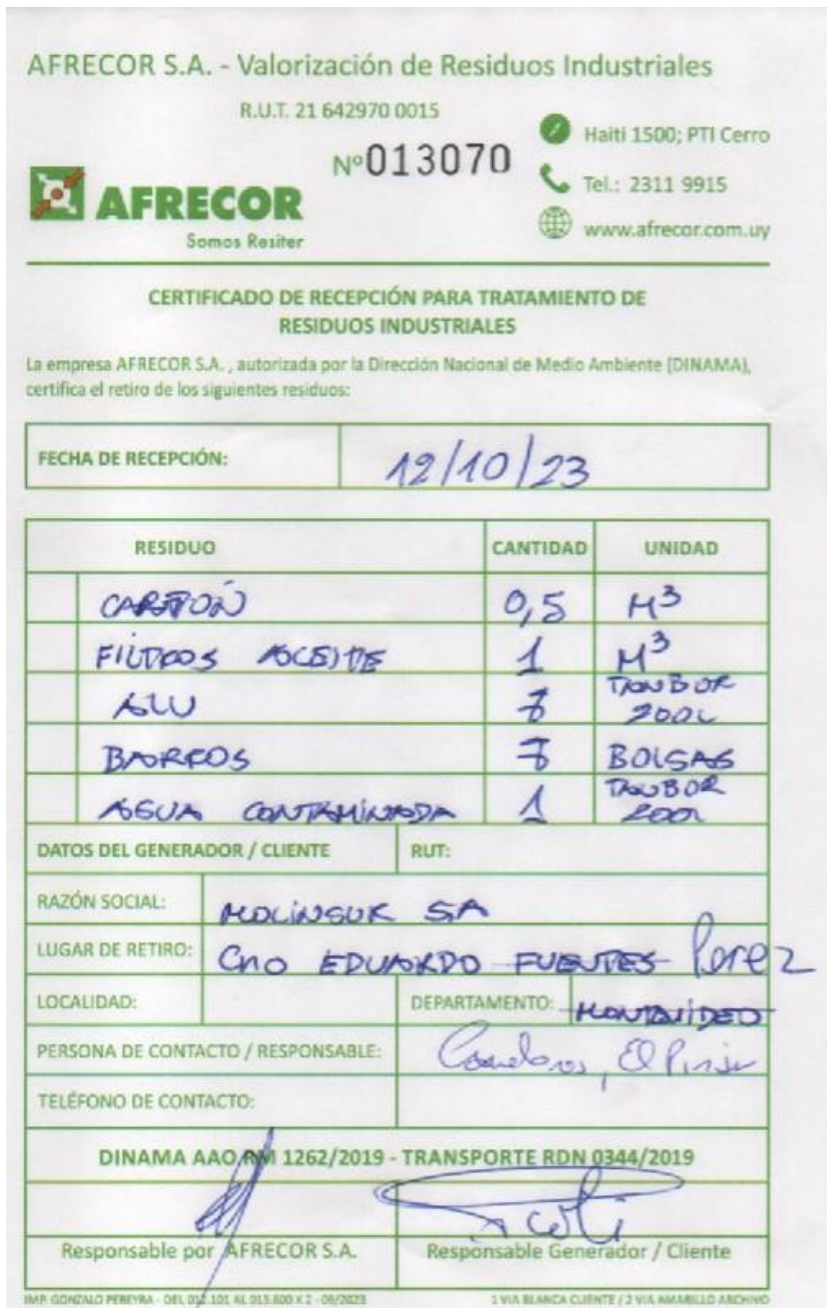 AFRECOR S.A. - Valorización de Residuos Industriales
R.U.T. 21 642970 0015
Nº013070
Haiti 1500; PTI Cerro
Tel.: 2311 9915
www.afrecor.com.uy
AFRECOR
Somos Resiter
CERTIFICADO DE RECEPCIÓN PARA TRATAMIENTO DE
RESIDUOS INDUSTRIALES
La empresa AFRECOR S.A. , autorizada por la Dirección Nacional de Medio Ambiente (DINAMA),
certifica el retiro de los siguientes residuos:
FECHA DE RECEPCIÓN: 12/10/23
RESIDUO CANTIDAD UNIDAD
CARTÓN 0,5 M³
FILTROS ACEITE 1 M³
ALU 7 TAMBOR 200L
BARROS 7 BOLSAS
AGUA CONTAMINADA 1 TAMBOR 200L
DATOS DEL GENERADOR / CLIENTE RUT:
RAZÓN SOCIAL: MOLINSUR SA
LUGAR DE RETIRO: Cno EDUARDO FUENTES Perez
LOCALIDAD: DEPARTAMENTO: MONTEVIDEO
PERSONA DE CONTACTO / RESPONSABLE: Canelones, El Pinar
TELÉFONO DE CONTACTO:
DINAMA AAO RM 1262/2019 - TRANSPORTE RDN 0344/2019
Responsable por AFRECOR S.A. Responsable Generador / Cliente
IMP. GONZALO PEREYRA - DEL 012.101 AL 013.600 X 2 - 09/2023 1 VIA BLANCA CLIENTE / 2 VIA AMARILLO ARCHIVO